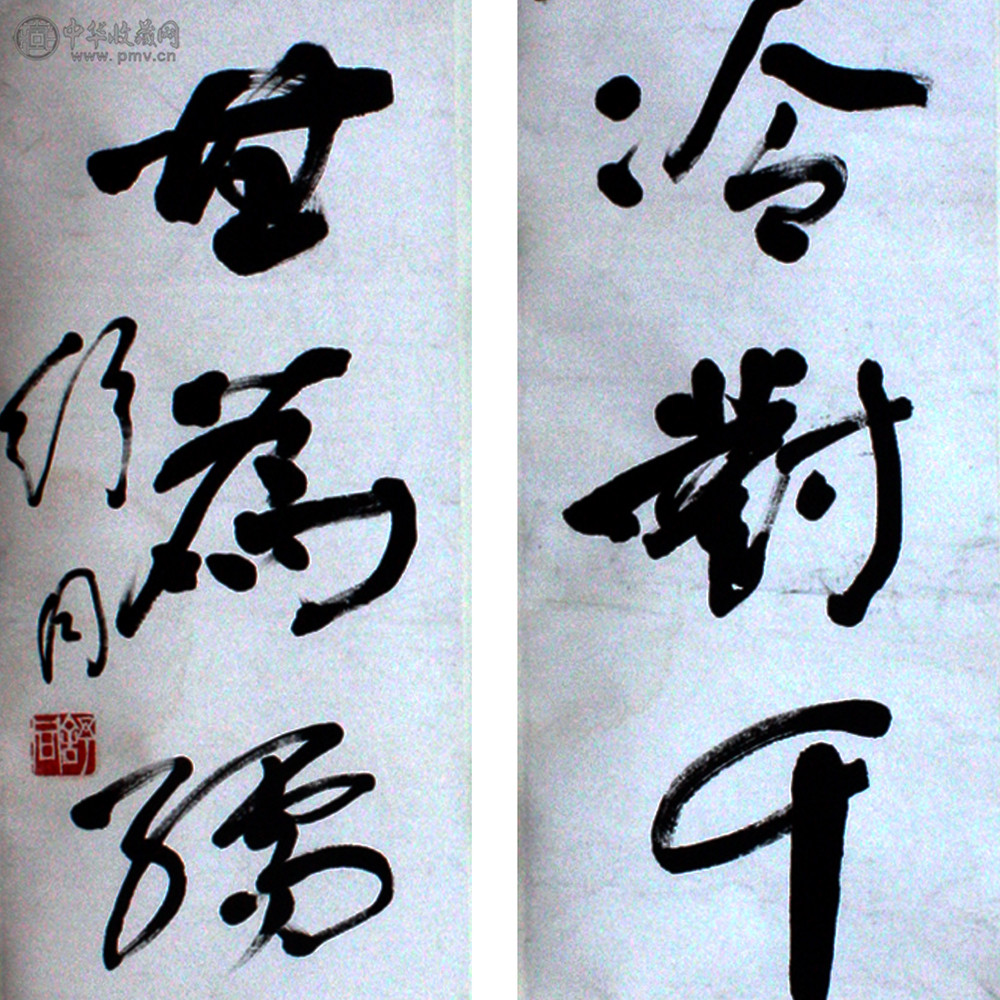 冷對千
甘為孺
舒同
舒同
中华收藏网
www.pmv.cn